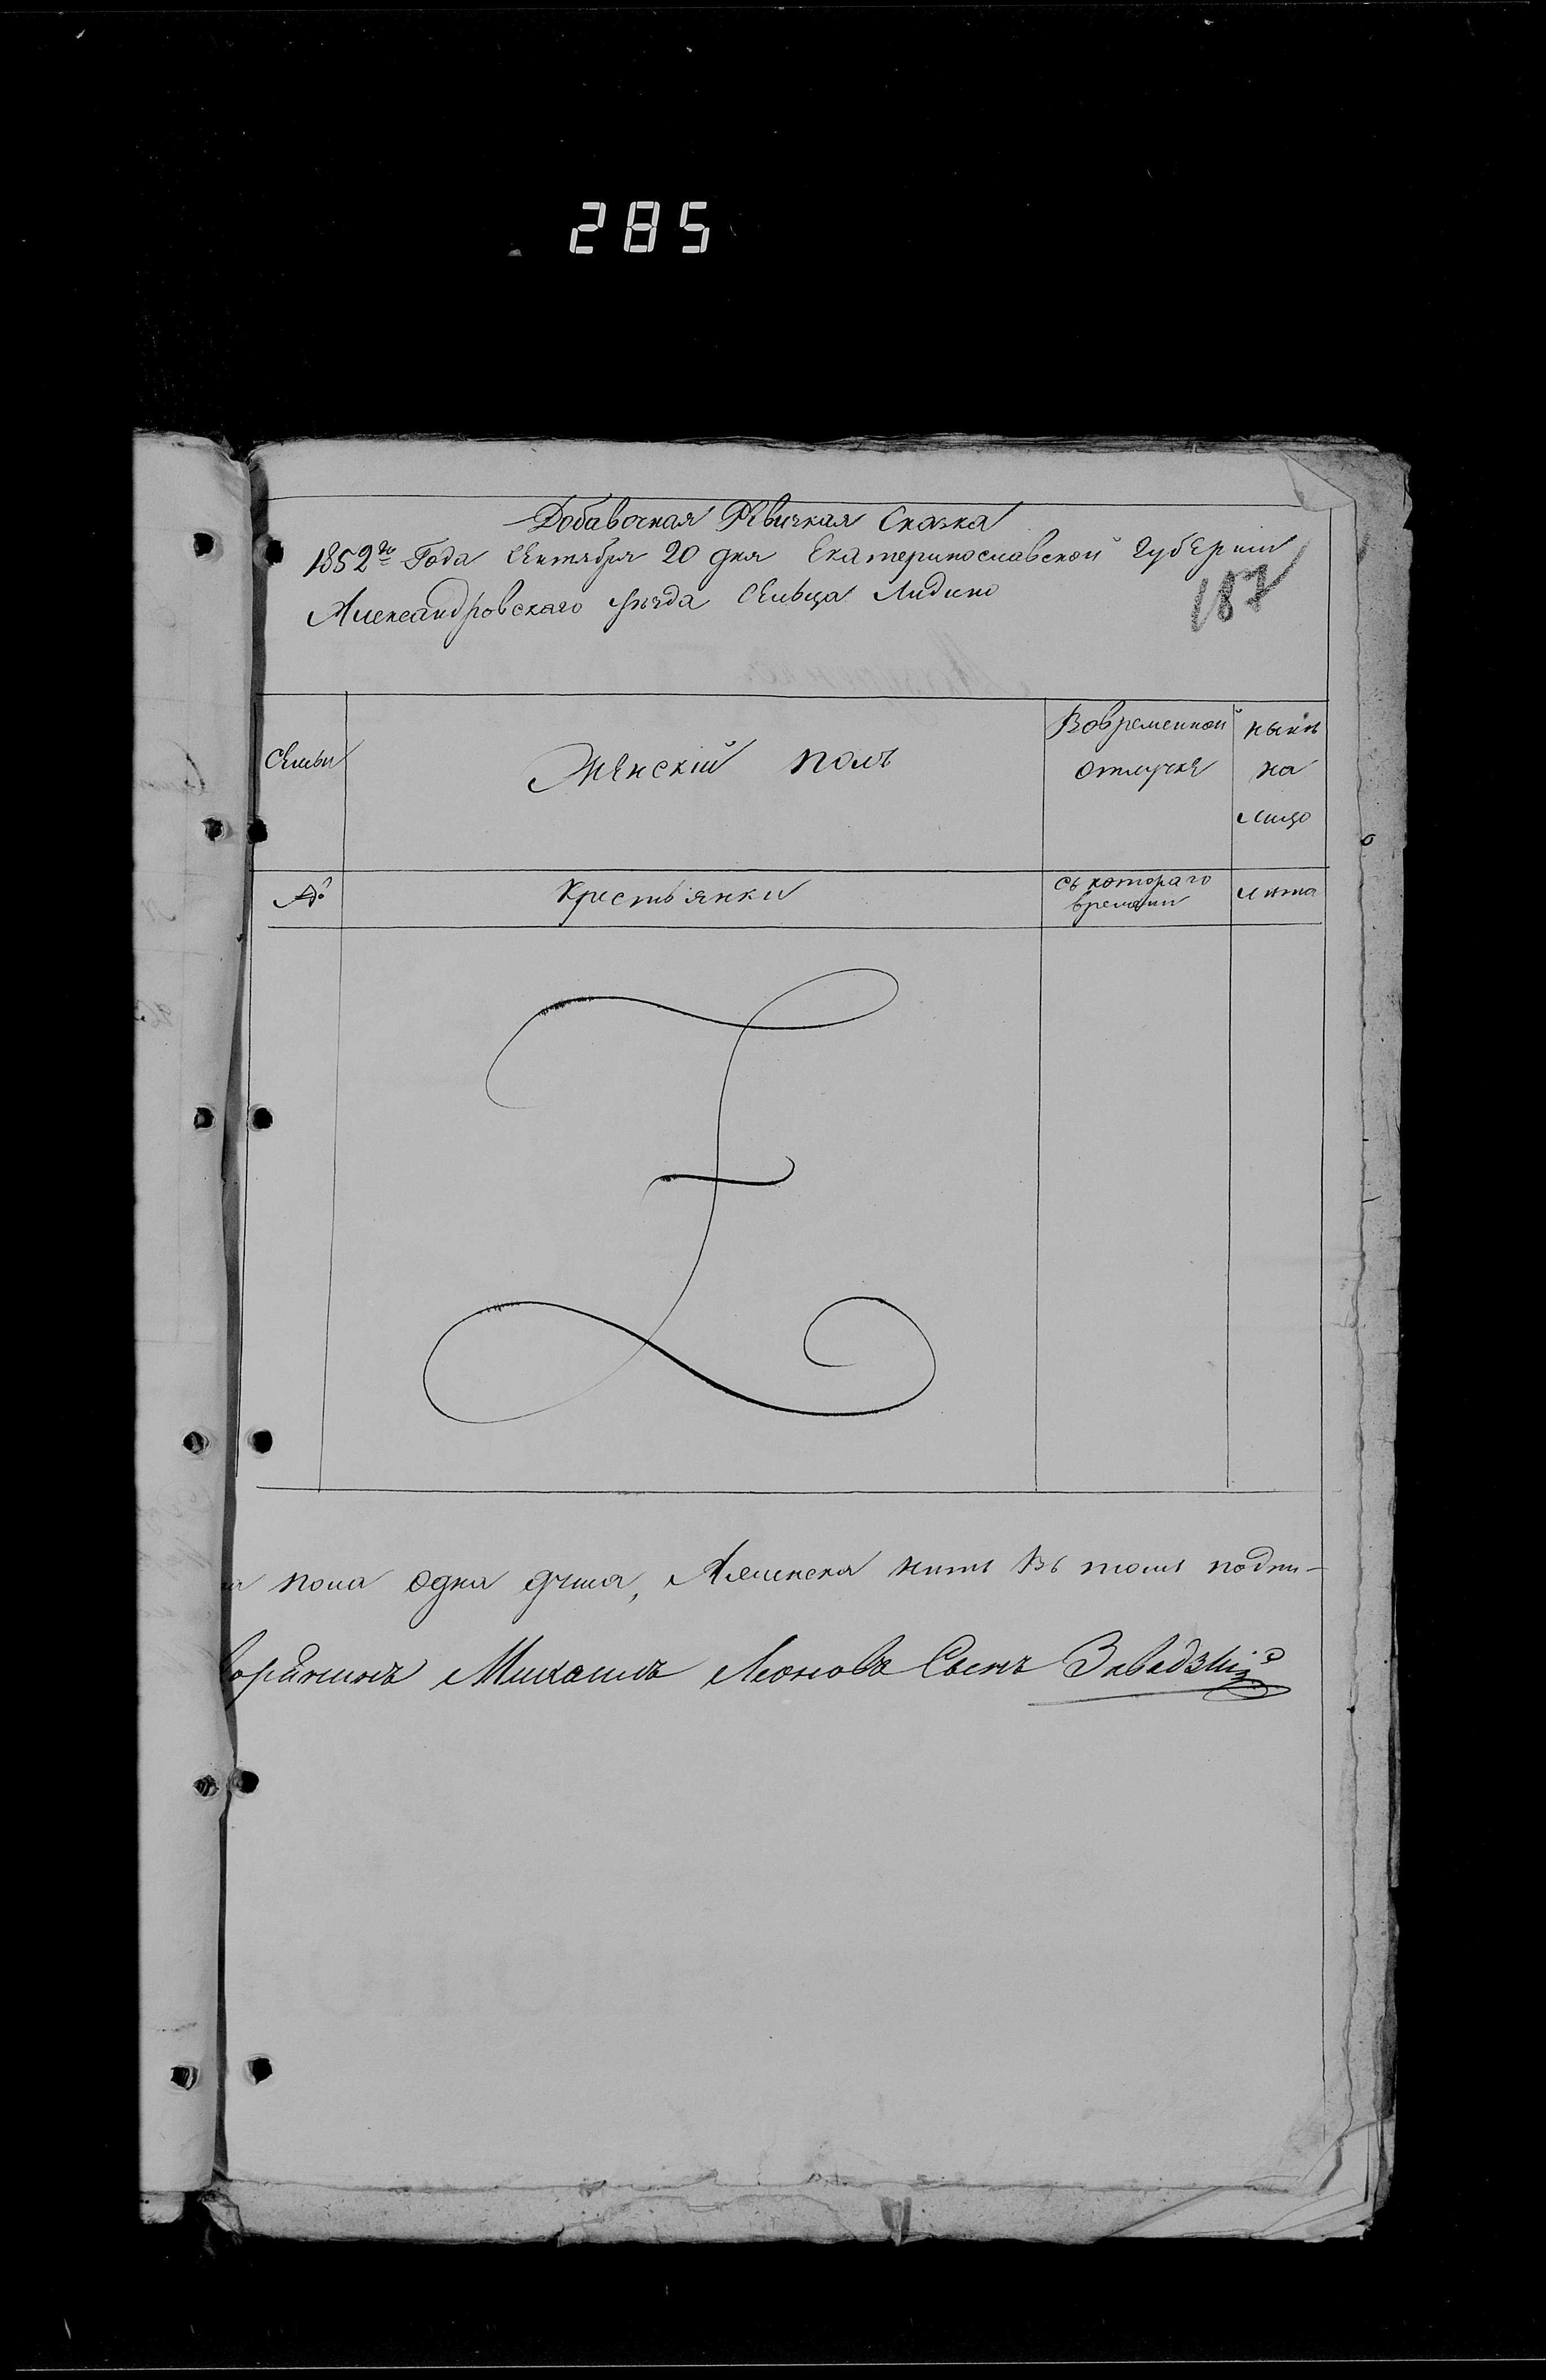 285
Добавочная Ревизкая Сказка
1852го Года Сентября 20 дня Екатеринославской Губернии
Александровскаго уѣзда Сельца Лидино
187
Семьи
Женскій полъ
Вовременной отлучке
нынѣ на лицо
№
Крестьянки
съ котораго времени
лѣта
пола одна душа, Аженска нитъ Въ томъ подпи-
ворянинъ Михаилъ Леоновъ Сынъ Завадзкій